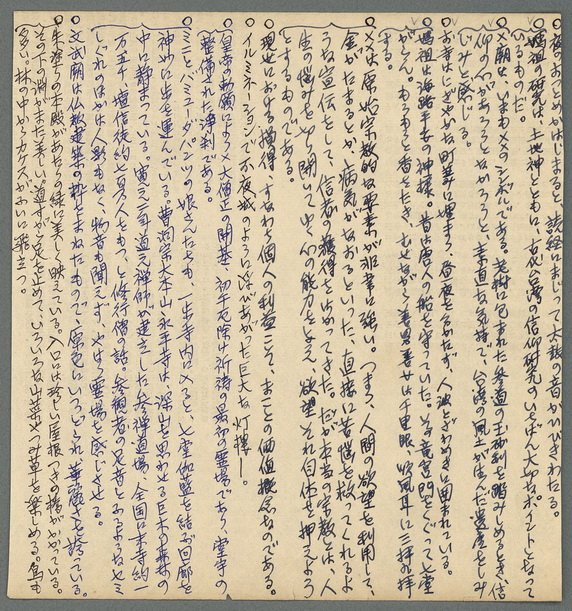 ○夜のおつとめがはじまると、読経にまじって太鼓の音がひびきわたる。
○媽祖の研究は、土地神とともに、古代台湾の信仰研究のいとばん大切なポイントとなって
いるものだ。
○メ廟は、いまもメのシンボルである。老樹に包まれた参道の玉砂利を踏みしめるとき、信
仰の心があろうとなかろうと、素直な気持で、台湾の風土が生んだ遺産をしみ
じみと感じる。
○お寺はにぎやかな町筋に埋まり、昼夜を分めたず、人波とざわめきに囲まれている。
○媽祖は海路平安の神様。昔は唐人の船を守っていた。その竜宮門をくぐって七堂
がらん。もうもうと香をたき、むせながら善男善女は千里眼、順風耳に三拝九拝
する。
○メメは原始宗教的な要素が非常に強い。つまり、人間の欲望を利用して、
金がたまるとか病気がなおるといった、直接に苦悩を救ってくれるよ
うな宣伝をして、信者の獲得をはかってきた。だが本当の宗教とは、人
生の悩みをやり開いてゆく心の能力を与え、欲望それ自体を押えよう
とするものである。
○現世における獲得、すなわち個人の利益こそ、まことの価値概念なのである。
○イルミネーションで不夜城のように浮びあがった巨大な灯搭──。
○皇帝の勅願によりメ大僧正の開基、初午厄除け祈祷の最初の霊場であり、堂守の
整備された浄刹である。
○ミニとバミューダパンツの娘さんたちも、一歩寺内に入ると、七堂伽藍を結ぶ回廊を
神妙に歩を運んでいる。曹洞宗大本山・永平寺は、深山を思わせる巨木の森の
中に静まっている。寛元二年道元禅師が建立した参禅道場、全国に末寺約一
万五千、壇信徒約七百万人をもつ、と修行僧の話。参観者の足音とあるような七三
しぐれのほかは人影もなく、物音も聞えず、やはり霊場を感じさせる。
○文武廟は仏教建築の粋をまねたもので、原色にいろどられ、華麗さを誇っている。
○朱塗りの本殿があたりの緑に美しく映えている。入口には珍しい屋根つき橋がかかっている。
その下の淵がまた美しい。道すがら足を止めて、いろいろな山菜や、つみ草を楽しめる。鳥も
多い。林の中からカケスがふいに飛立つ。